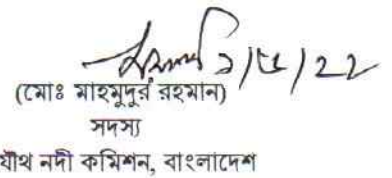 (মোঃ মাহমুদুর রহমান)
সদস্য
যৌথ নদী কমিশন, বাংলাদেশ